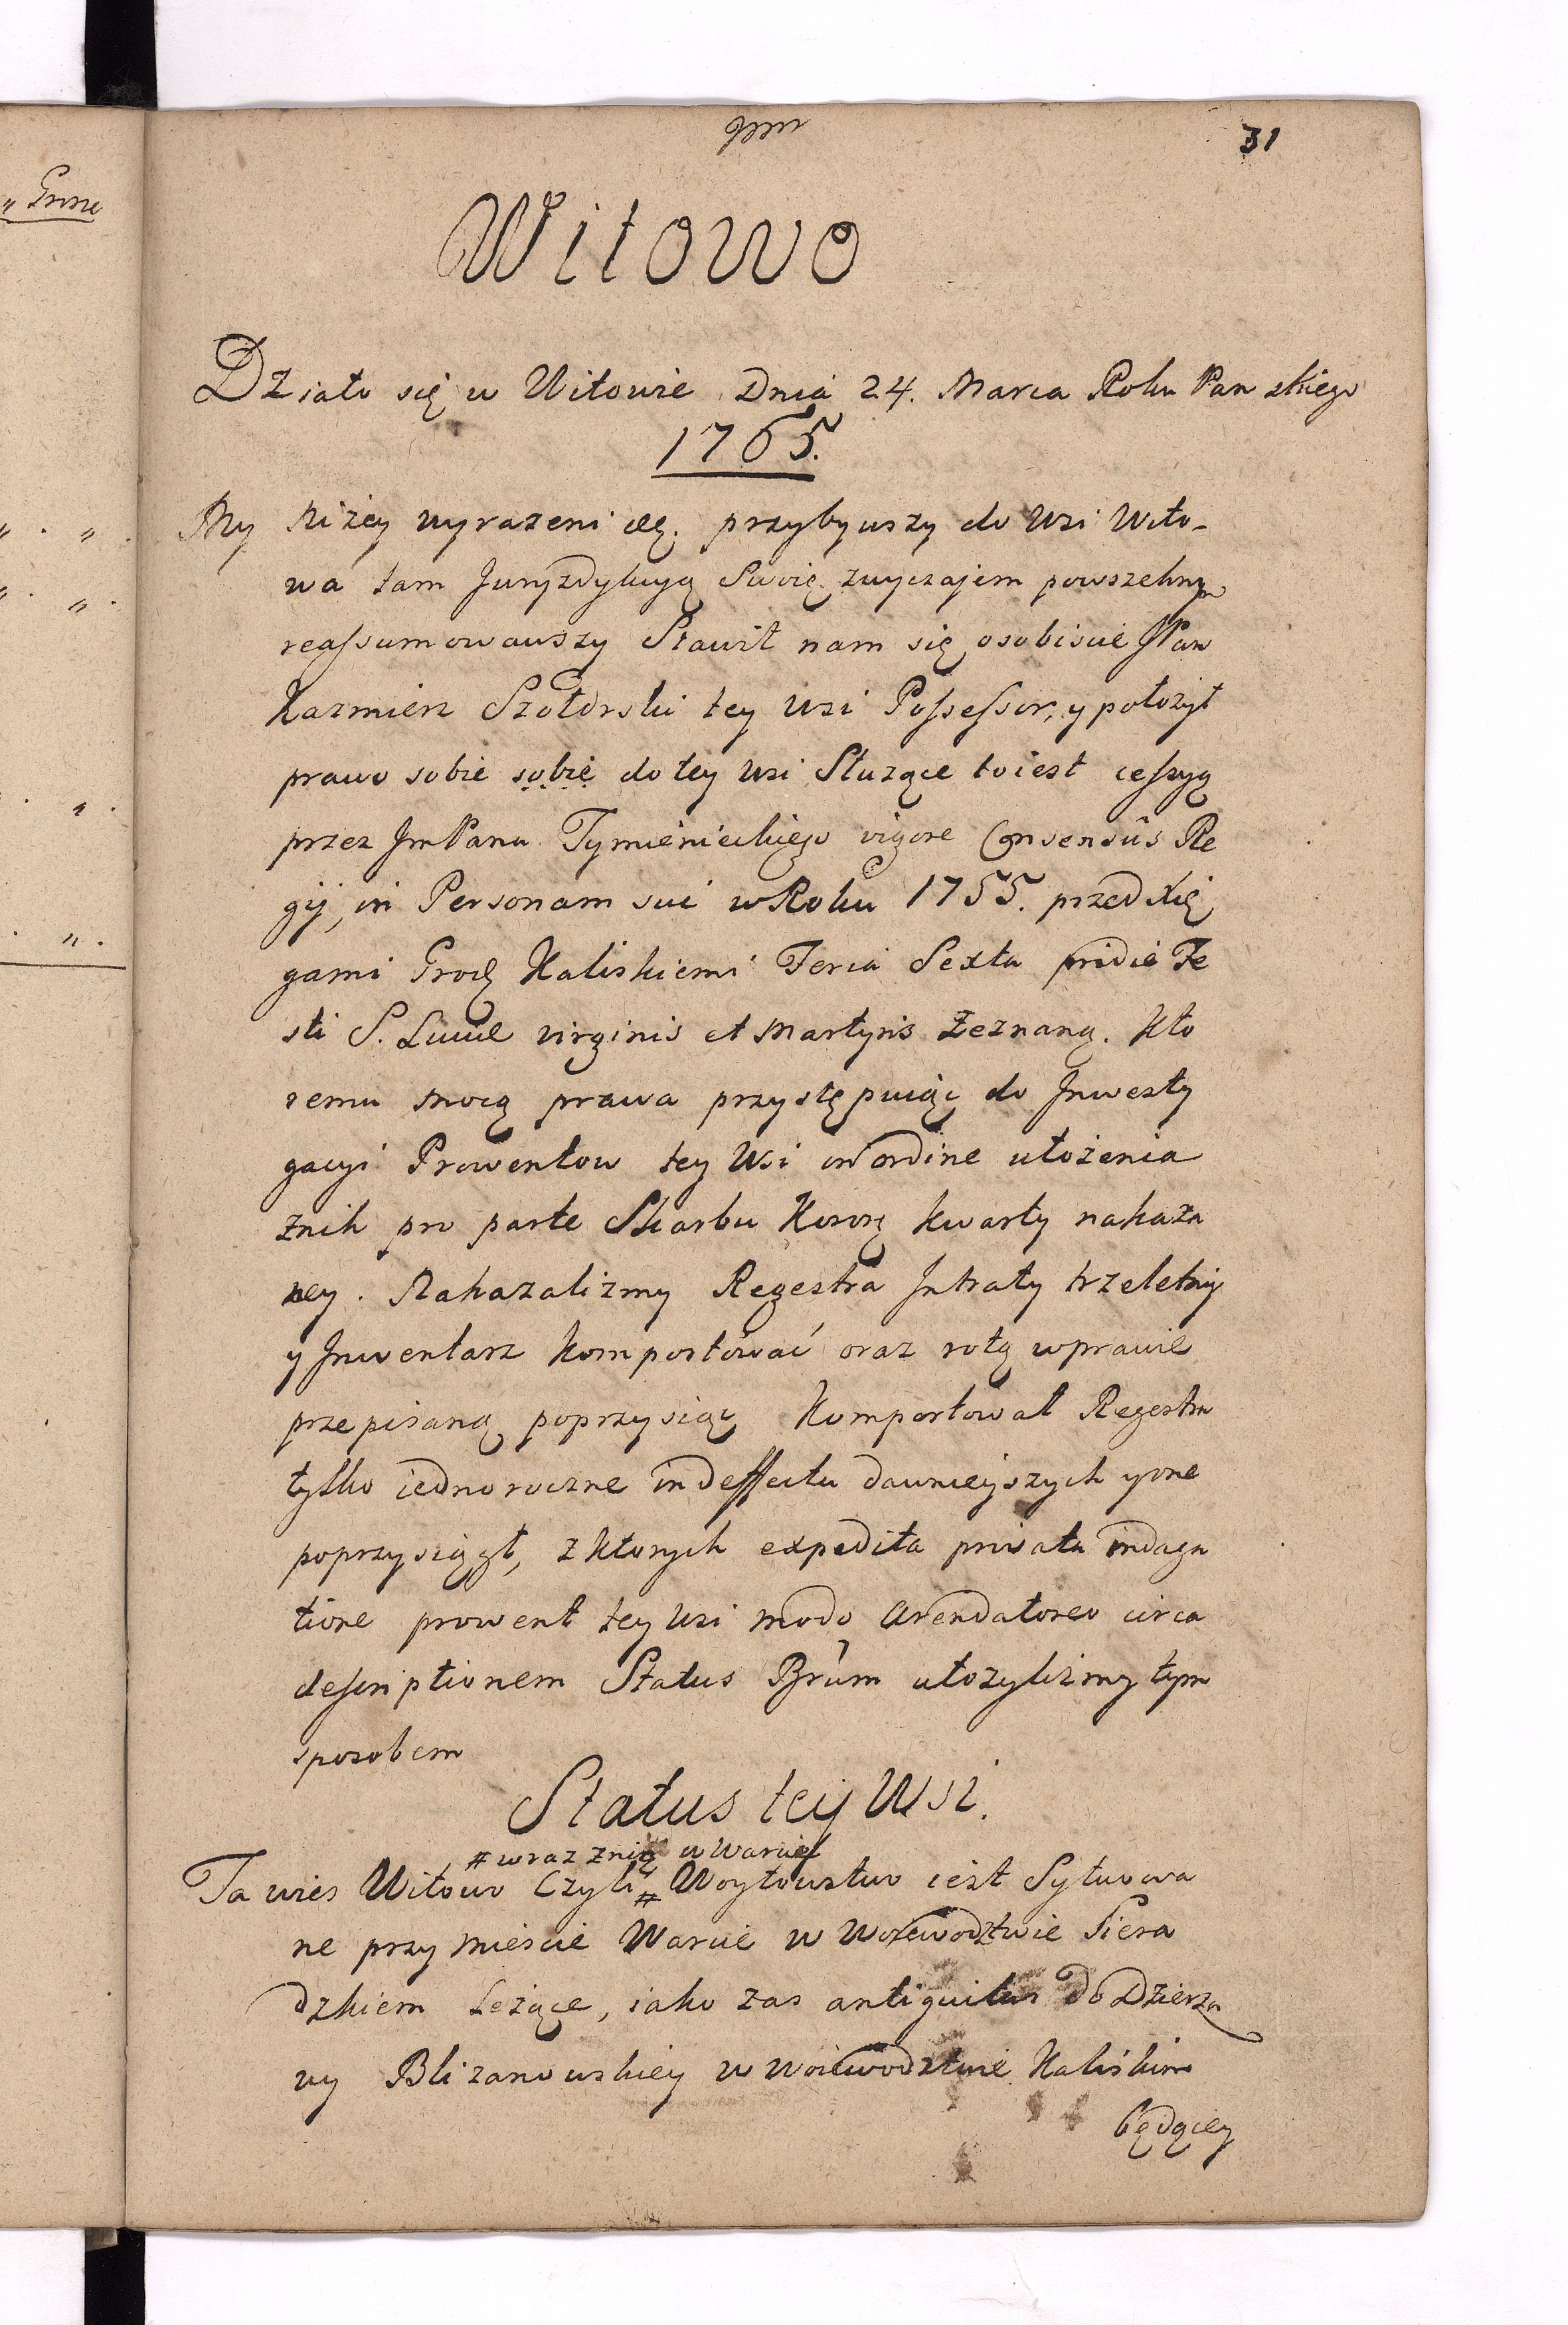 31
Witowo
Działo się w Witowie Dnia 24. Marca Roku Panskiego
1765.
My Niżey wyrazeni etc. przybywszy do Wsi Wito-
wa tam Juryzdykcyą Swoię zwyczajem powszehnym
reassumowawszy Stawił nam się osobiscie JPan
Kazmierz Szołdrski tey Wsi Possessor, y połozył
prawo sobie sobie do tey Wsi Słuzące to iest cessyą
przez JmPana Tymienieckiego vigore Consensûs Re
gij, in Personam sui w Roku 1755. przed Xię
gami Grodz Kaliskiemi Feria Sexta pridie Fe
sti S. Luciæ virginis et Martyris Zeznaną. Kto
remu mocą prawa przystępuiąc do Jnwesty
gacyi Prowentow tey Wsi in ordine ułożenia
znih pro parte Skarbu Koron kwarty nakaza
ney. Nakazalizmy Regestra Jntraty trzeletniey
y Jnwentarz komportować oraz rotę w prawie
przepisaną poprzysiąc Komportował Regestra
tylko iednoroczne in deffectu dawniejszych y one
poprzysiągł, z ktorych expedita privata indaga
tione prowent tey Wsi modo Arendatoreo circa
descriptionem Status Brum ułozylizmy tym
sposobem
Status tey Wsi.
# wraz z nią w Warcie
Ta wies Witowo Czyli # Woytowstwo iest Sytuowa
ne przy Miescie Warcie w Wojewodztwie Siera
dzkiem Leżące, iako zas antiquitus do Dzierza
wy Blizanowskiey w Woiewodztwie Kaliskim
będącey